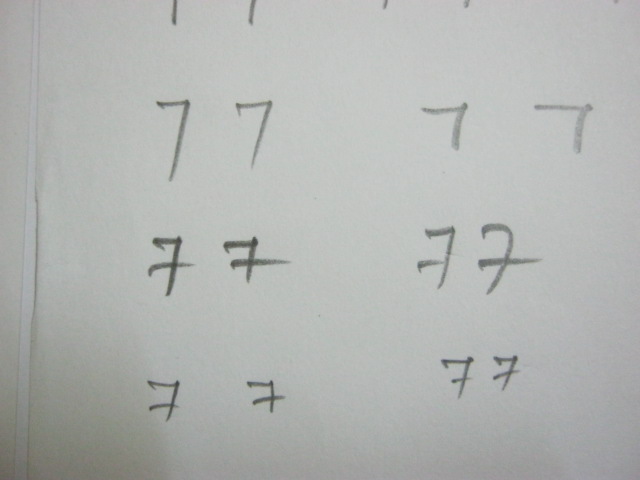 7 7 7 7
7 7 7 7
7 7 7 7